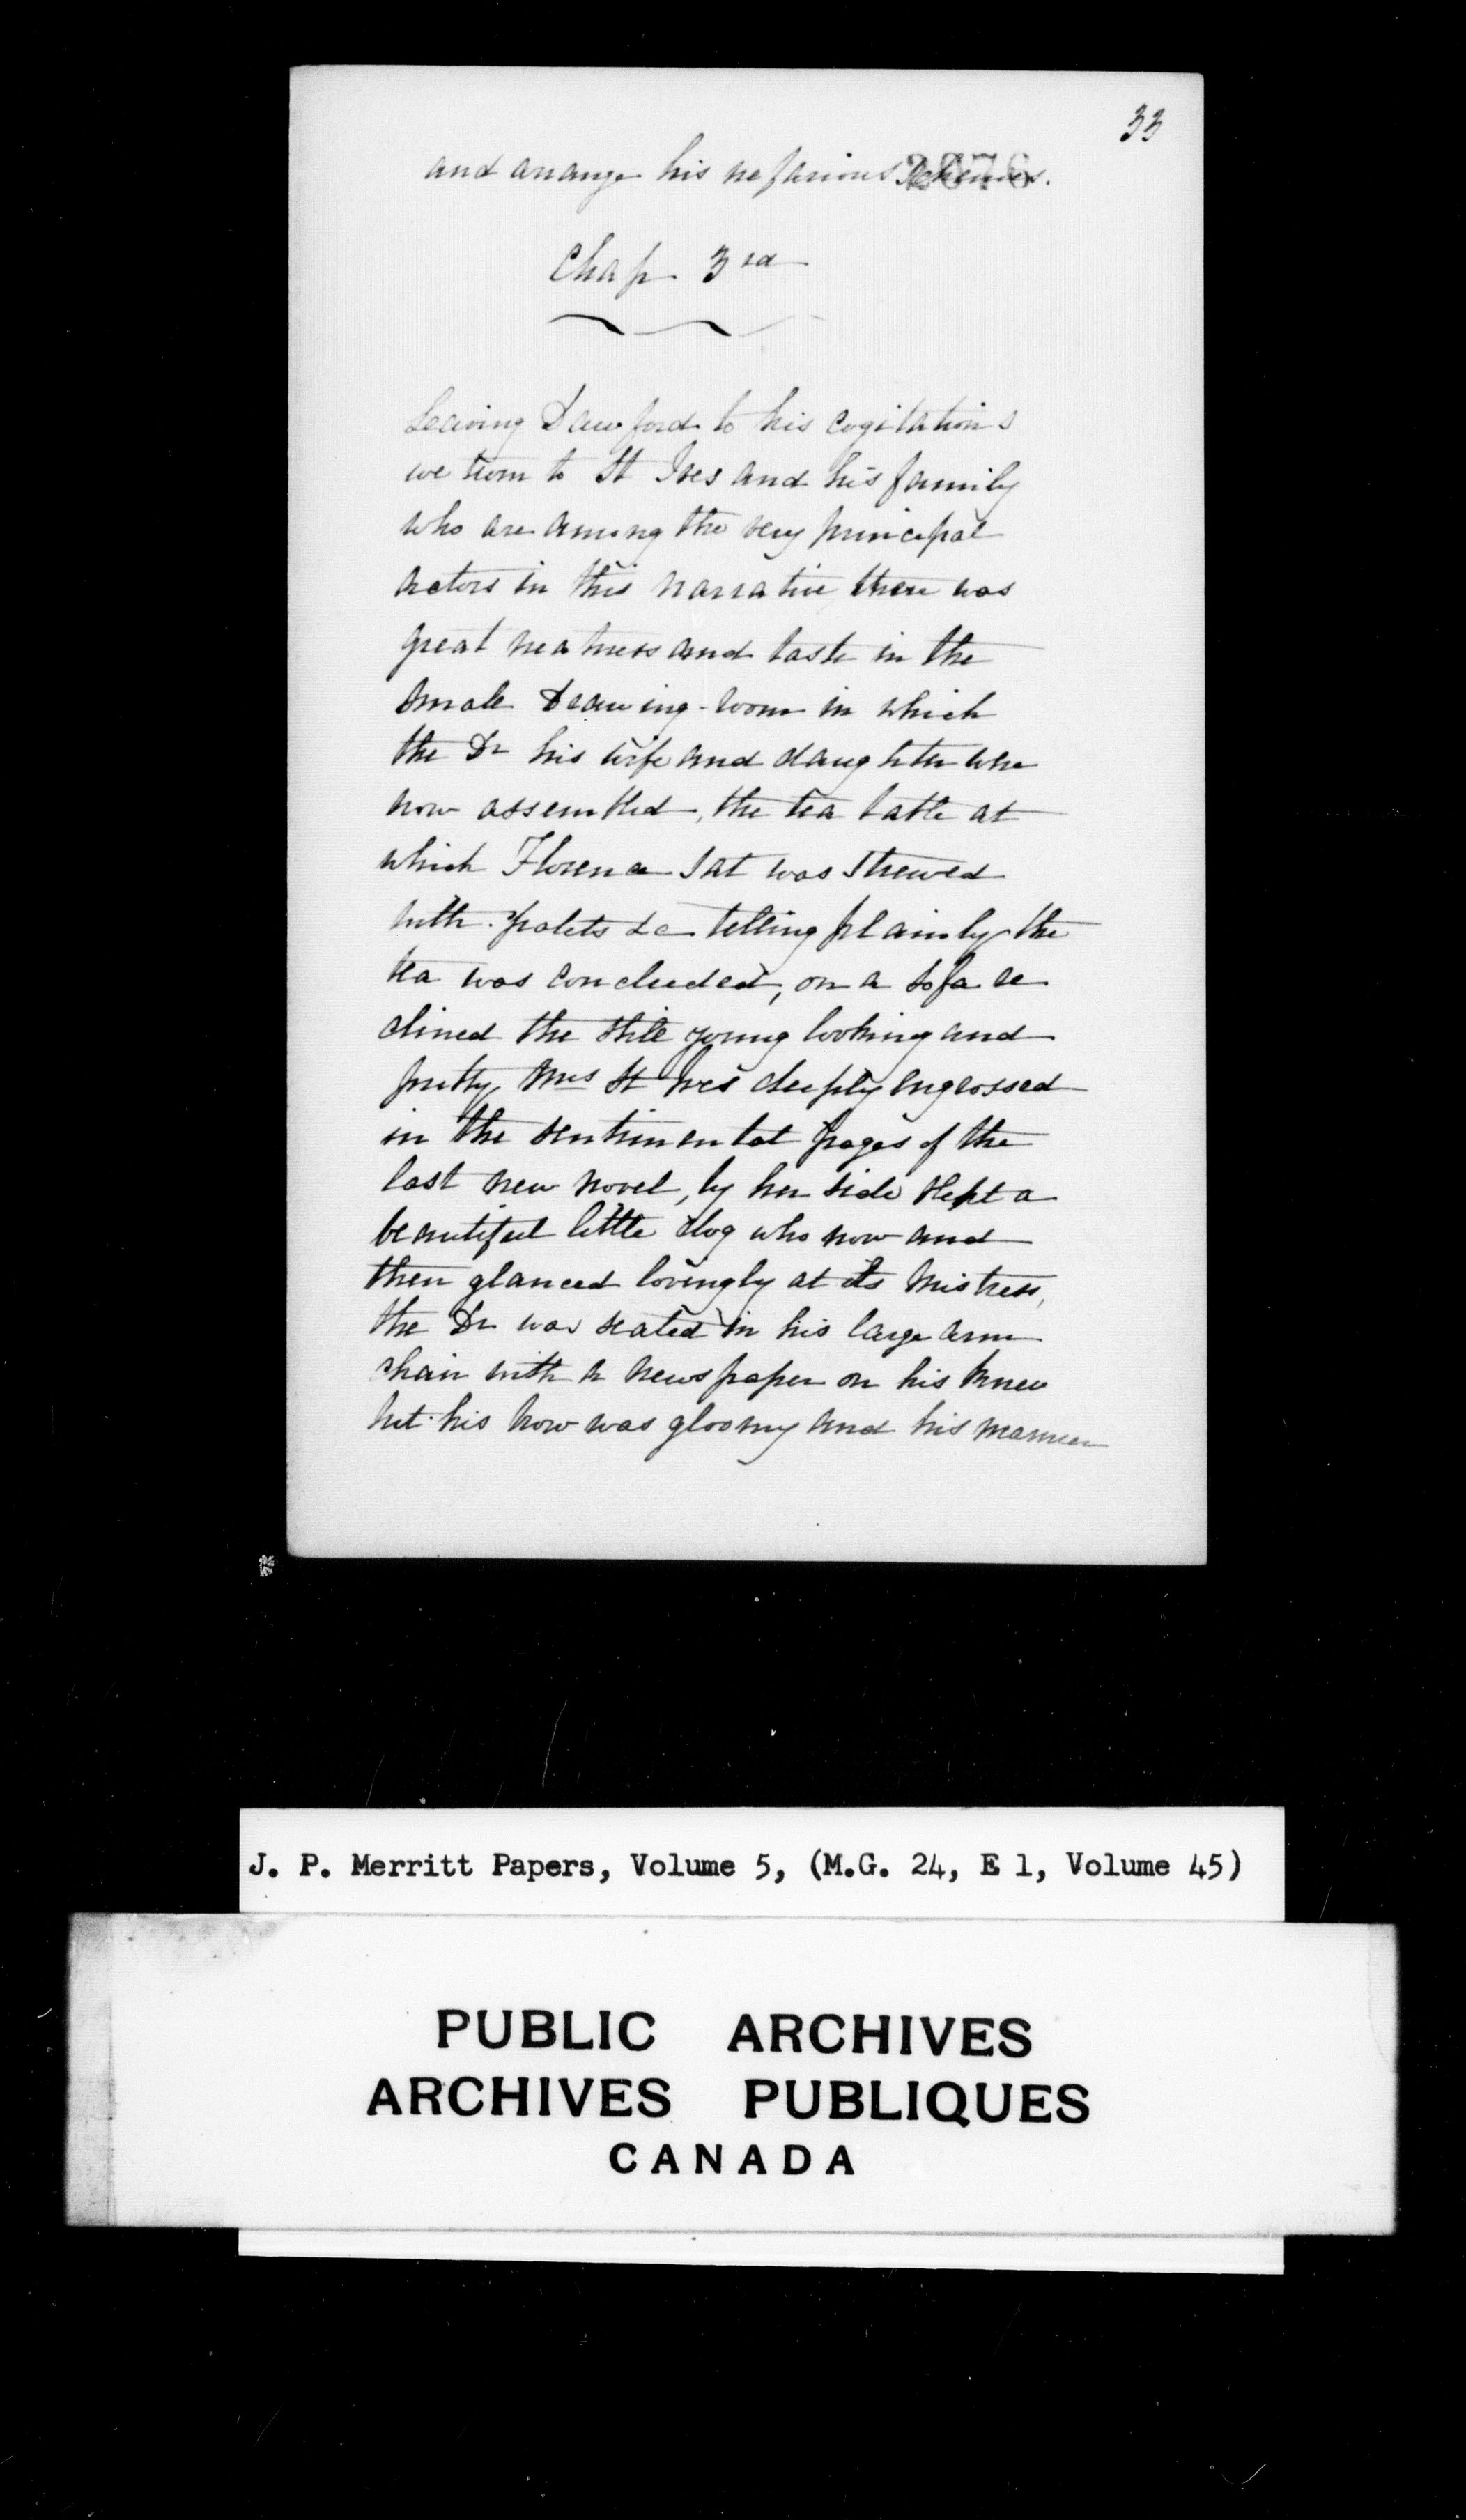 33
and arrange his nefarious schemes.
Chap 3rd
Leaving Dawford to his cogitations
we turn to St Ives and his family
who are among the very principal
actors in this narrative, there was
great neatness and taste in the
small Drawing-room in which
the Dr his wife and daughter were
now assembled, the tea table at
which Florence sat was strewed
with &c telling plainly the
tea was concluded, on a sofa re
clined the still young looking and
pretty Mrs St Ives deeply engrossed
in the sentimental pages of the
last new novel, by her side slept a
beautiful little dog who now and
then glanced lovingly at its Mistress,
the Dr was seated in his large arm
chair with a newspaper on his knee
but his brow was gloomy and his manner
J. P. Merritt Papers, Volume 5, (M.G. 24, E 1, Volume 45)
PUBLIC ARCHIVES
ARCHIVES PUBLIQUES
CANADA